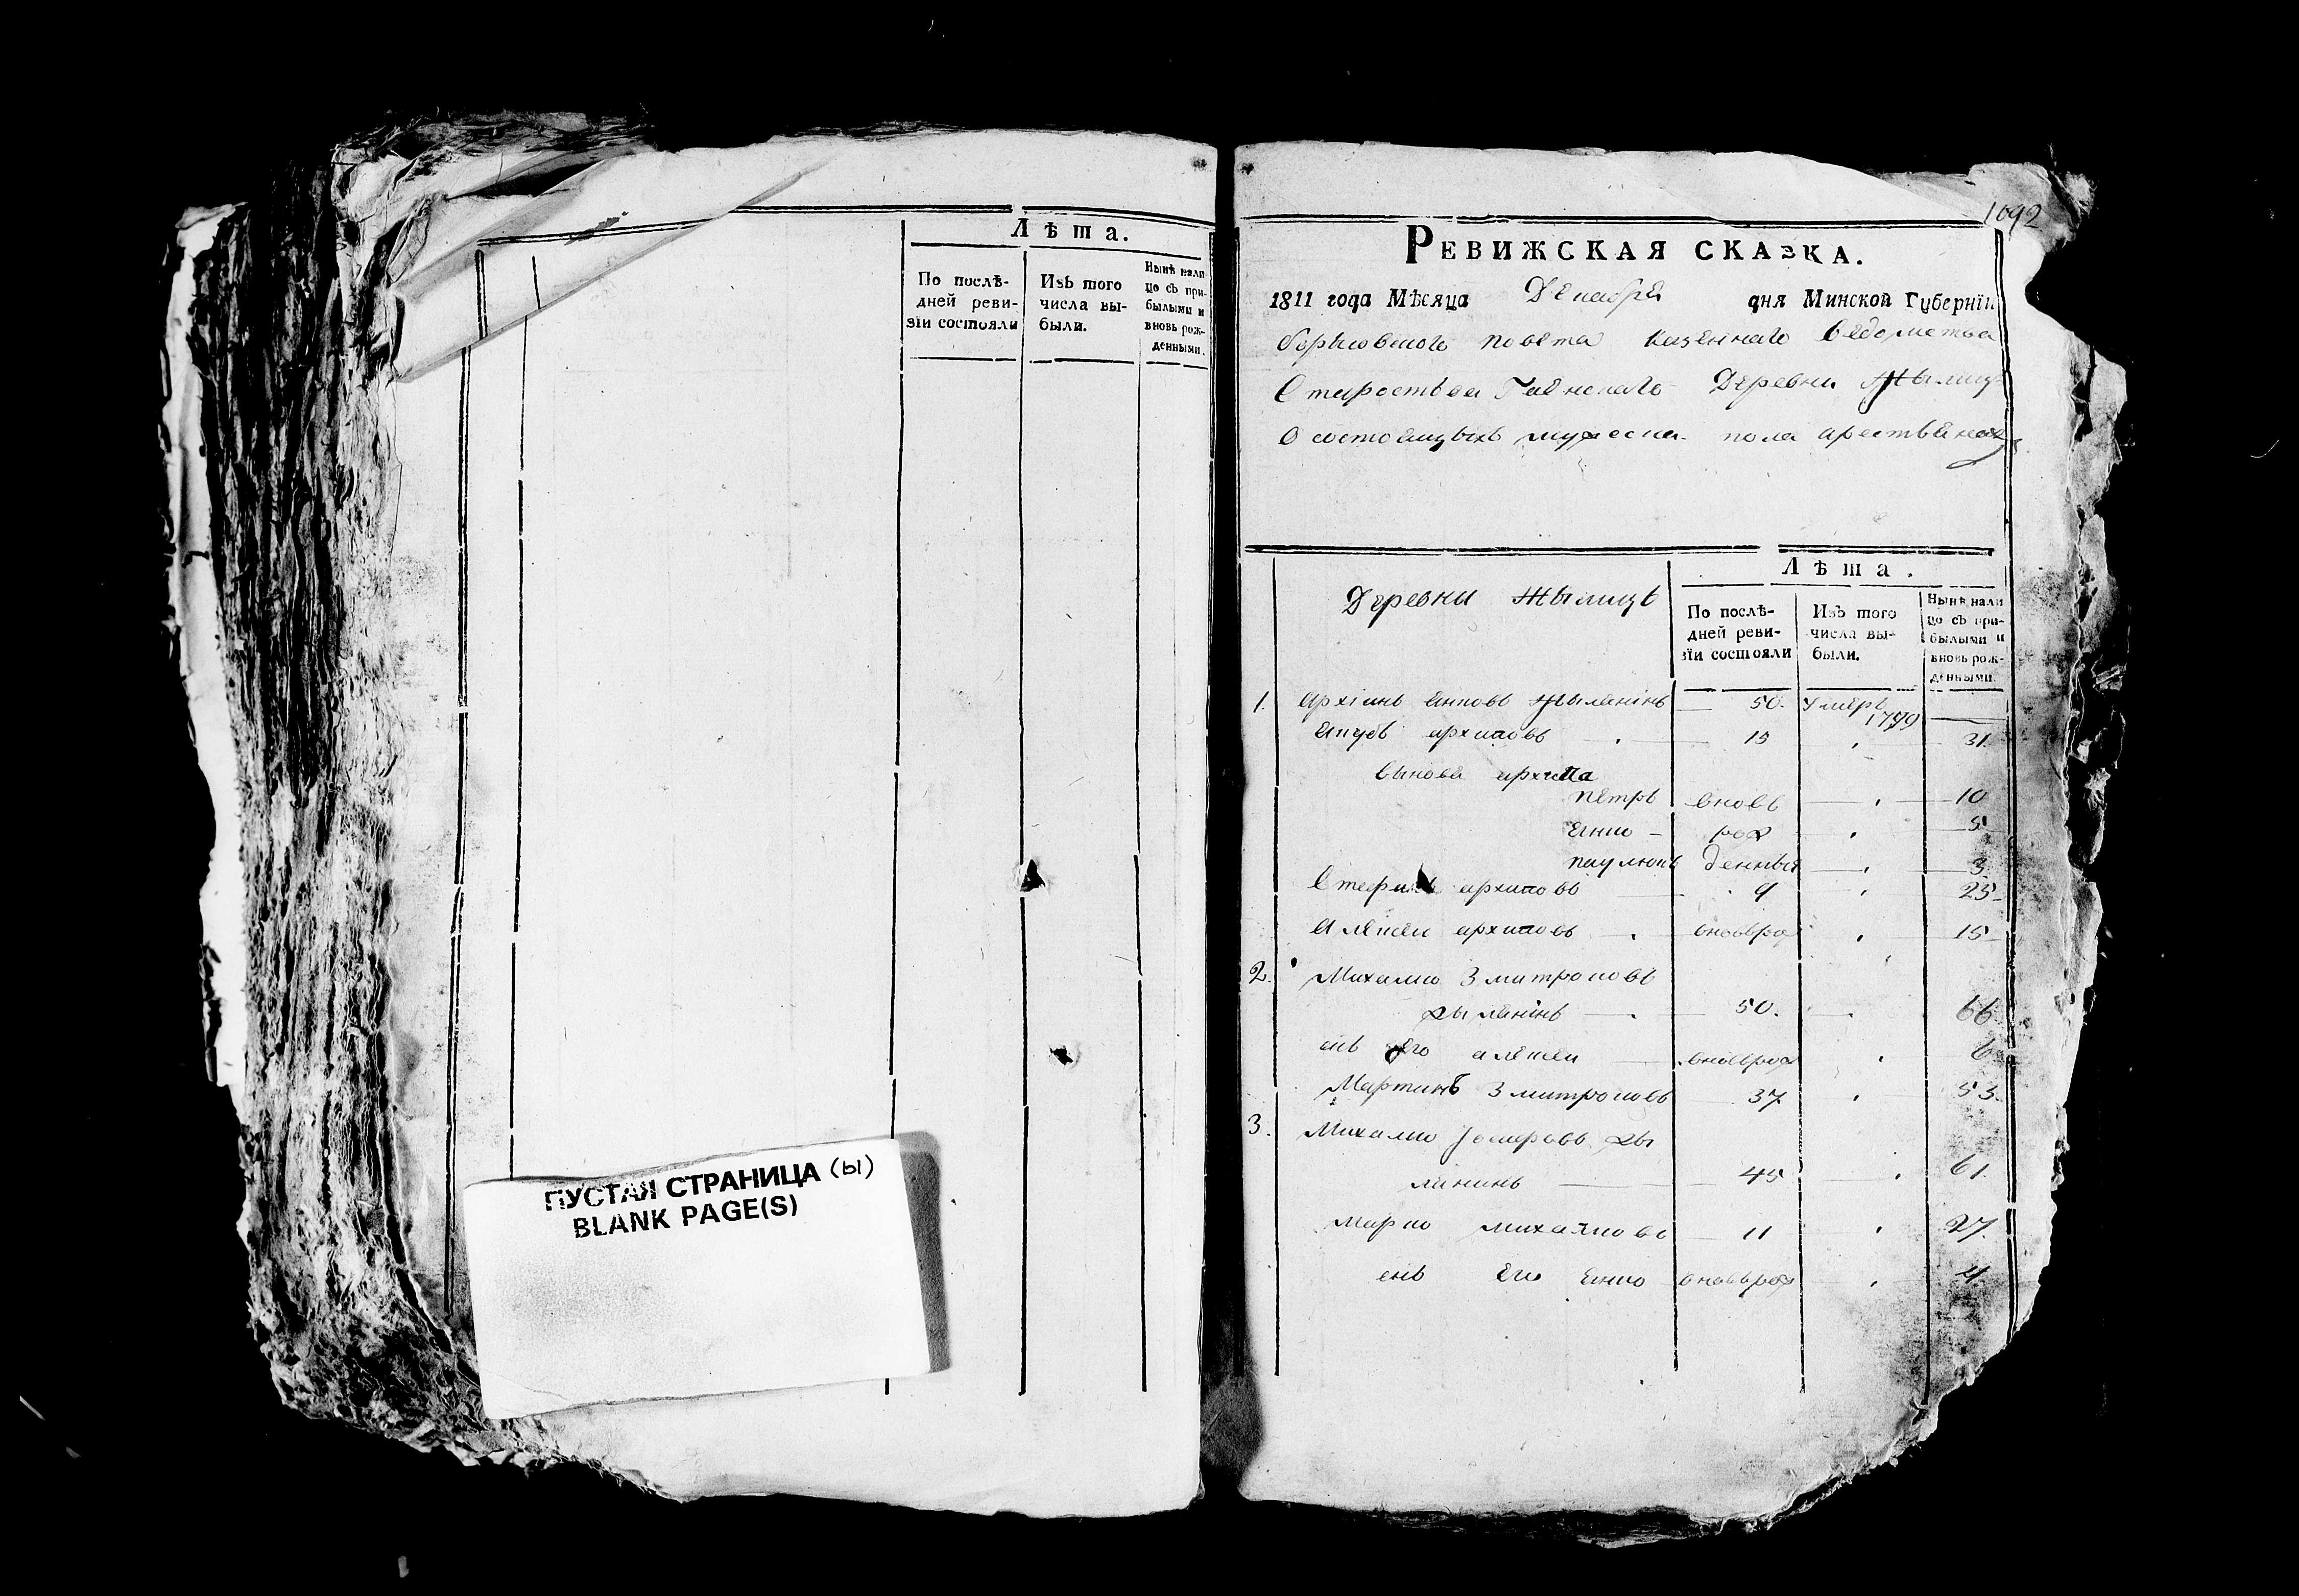 Лѣта.
По послѣ-
дней реви-
зіи состояли
Изъ того
числа вы-
были.
Нынѣ нали
цо съ при-
былыми и
вновь рож-
денными.
ПУСТАЯ СТРАНИЦА (Ы)
BLANK PAGE(S)
1092
РЕВИЖСКАЯ СКАЗКА.
1811 года Мѣсяца Декабря дня Минской Губерніи
Борисовского повета казеннаго ведомства
Староства Гаенскаго Деревни Жылицъ
О состоящыхъ мужеска пола
Деревни Жылицъ
Лѣта.
По послѣ-
дней реви-
зіи состояли
Изъ того
числа вы-
были.
Нынѣ нали
цо съ при-
былыми и
вновь рож-
денными.
1. Архіпъ 50. Умеръ 1799
архиповъ 15 31.
архипа
петръ вновь 10
рож 5
денныя 3
архиповъ 9 25
архиповъ вновърож 15
2. Михалко Змитроковъ
жылянінъ 50. 66.
его алексеи вновьрож 6
Мартинъ Змитроковъ 37 53.
3. Михалко жы
лининъ 45 61.
Марко михалковъ 11 27.
снъ его вновьрож 4